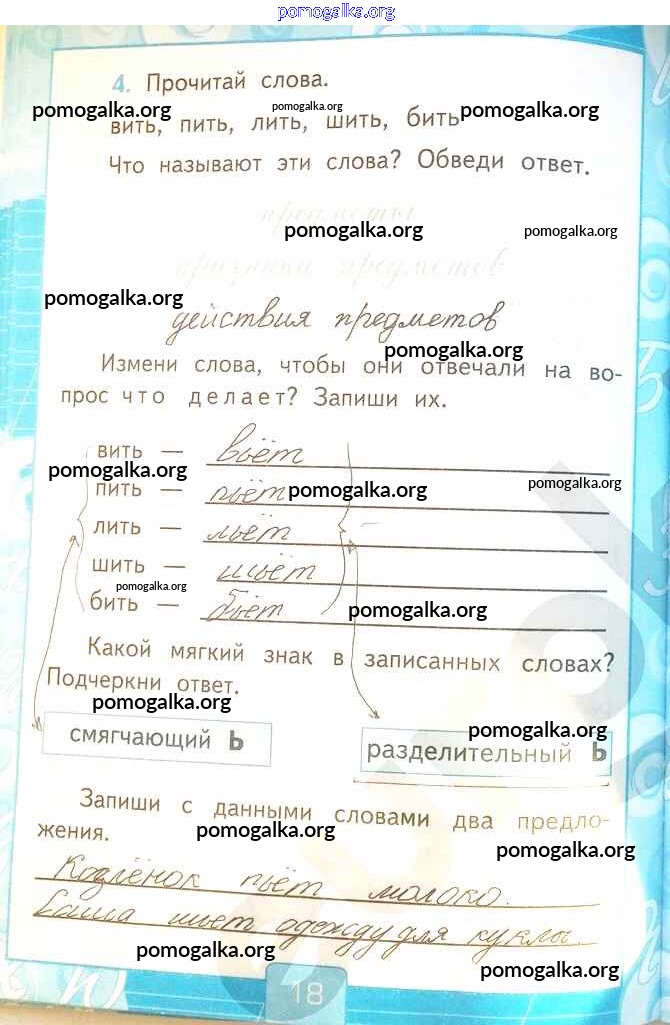 pomogalka.org
4. Прочитай слова.
pomogalka.org pomogalka.org pomogalka.org
вить, пить, лить, шить, бить
Что называют эти слова? Обведи ответ.
предметы
pomogalka.org pomogalka.org
признаки предметов
pomogalka.org
действия предметов
pomogalka.org
Измени слова, чтобы они отвечали на во-
прос что делает? Запиши их.
вить — вьёт
pomogalka.org pomogalka.org pomogalka.org
пить — пьёт
лить — льёт
шить — шьёт
pomogalka.org pomogalka.org
бить — бьёт
Какой мягкий знак в записанных словах?
Подчеркни ответ.
pomogalka.org
pomogalka.org
смягчающий ь разделительный ь
Запиши с данными словами два предло-
жения.
pomogalka.org
pomogalka.org
Козлёнок пьёт молоко.
Саша шьет одежду для куклы.
pomogalka.org
pomogalka.org
18